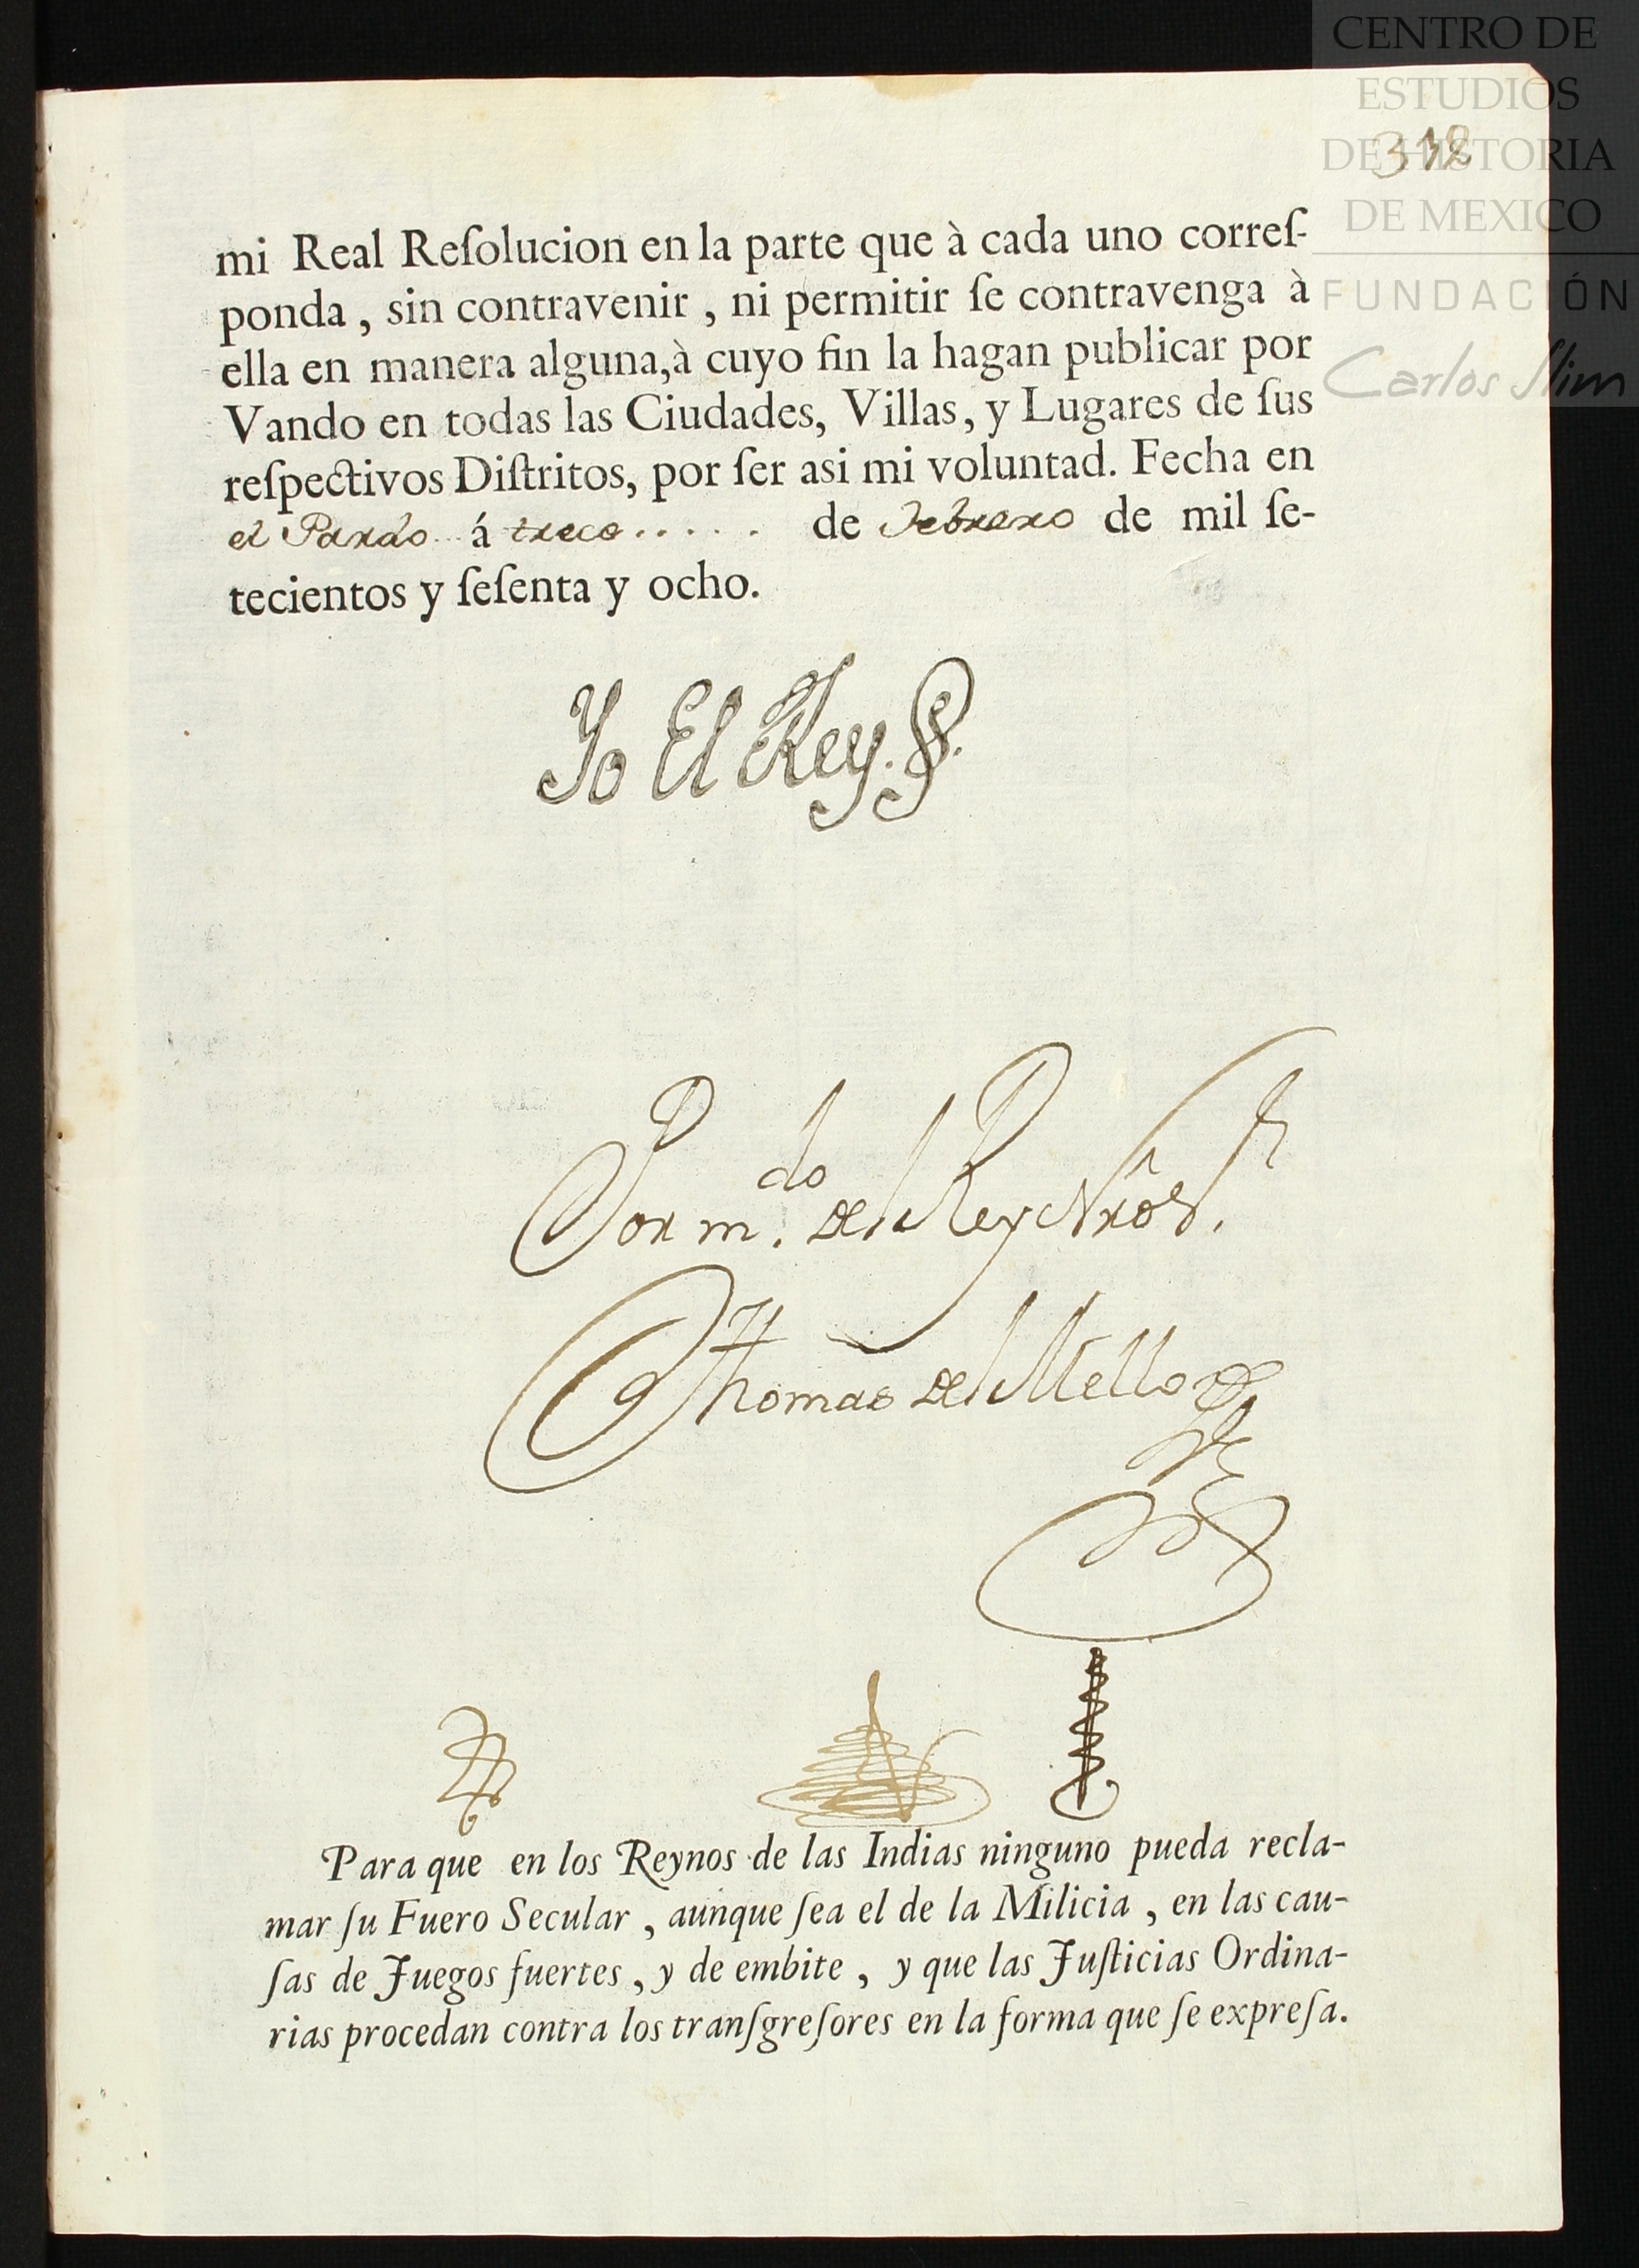 CENTRO DE
ESTUDIOS
DE HISTORIA
DE MEXICO
FUNDACIÓN
Carlos Slim
mi Real Reſolucion en la parte que à cada uno correſ-
ponda , sin contravenir , ni permitir ſe contravenga à
ella en manera alguna, à cuyo fin la hagan publicar por
Vando en todas las Ciudades, Villas, y Lugares de ſus
reſpectivos Diſtritos, por ſer asi mi voluntad. Fecha en
el Pardo á trece..... de Febrero de mil ſe-
tecientos y ſeſenta y ocho.
Yo El Rey.
Por m.do del Rey Nrõ S.r
Thomas del Mello
Para que en los Reynos de las Indias ninguno pueda recla-
mar ſu Fuero Secular , aunque ſea el de la Milicia , en las cau-
ſas de Juegos fuertes , y de embite , y que las Juſticias Ordina-
rias procedan contra los tranſgreſores en la forma que ſe expreſa.